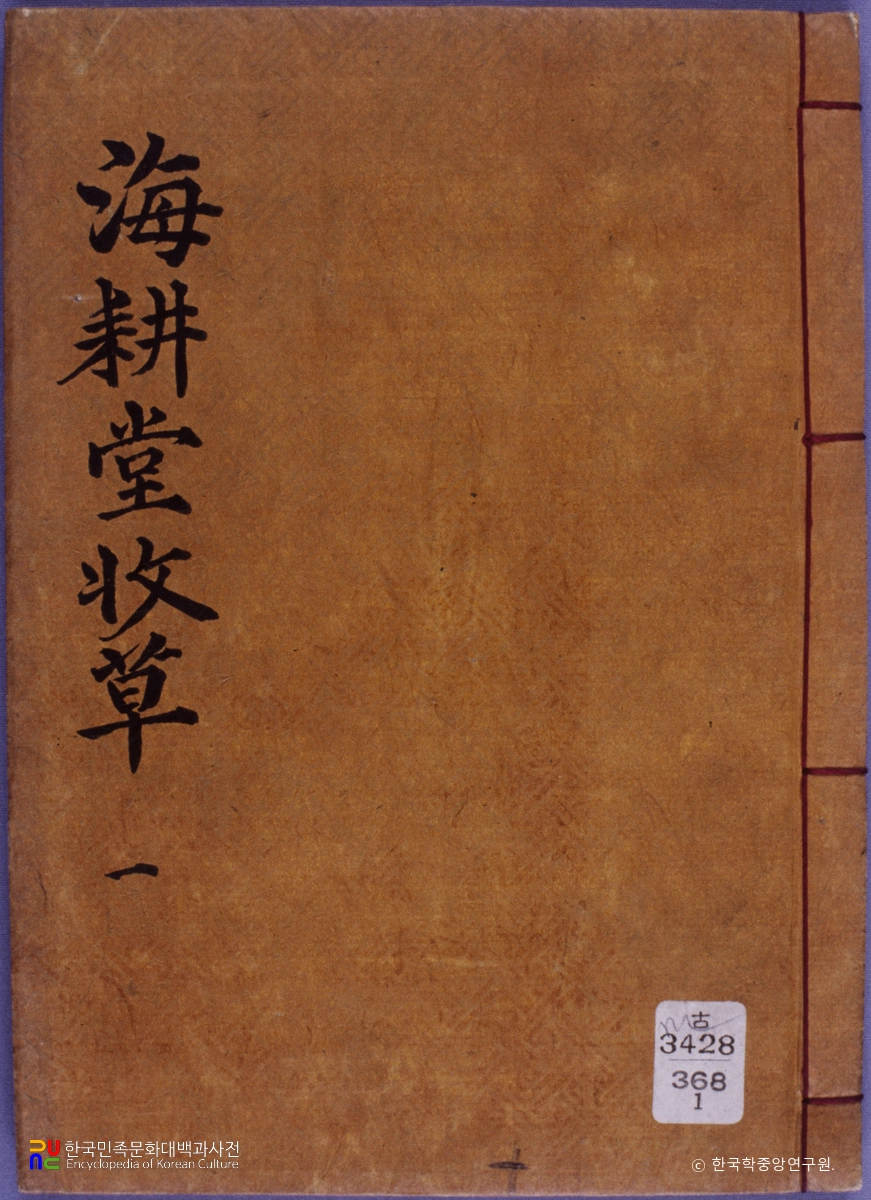 海耕堂收草
一
古
3428
368
1
한국민족문화대백과사전
Encyclopedia of Korean Culture
© 한국학중앙연구원.